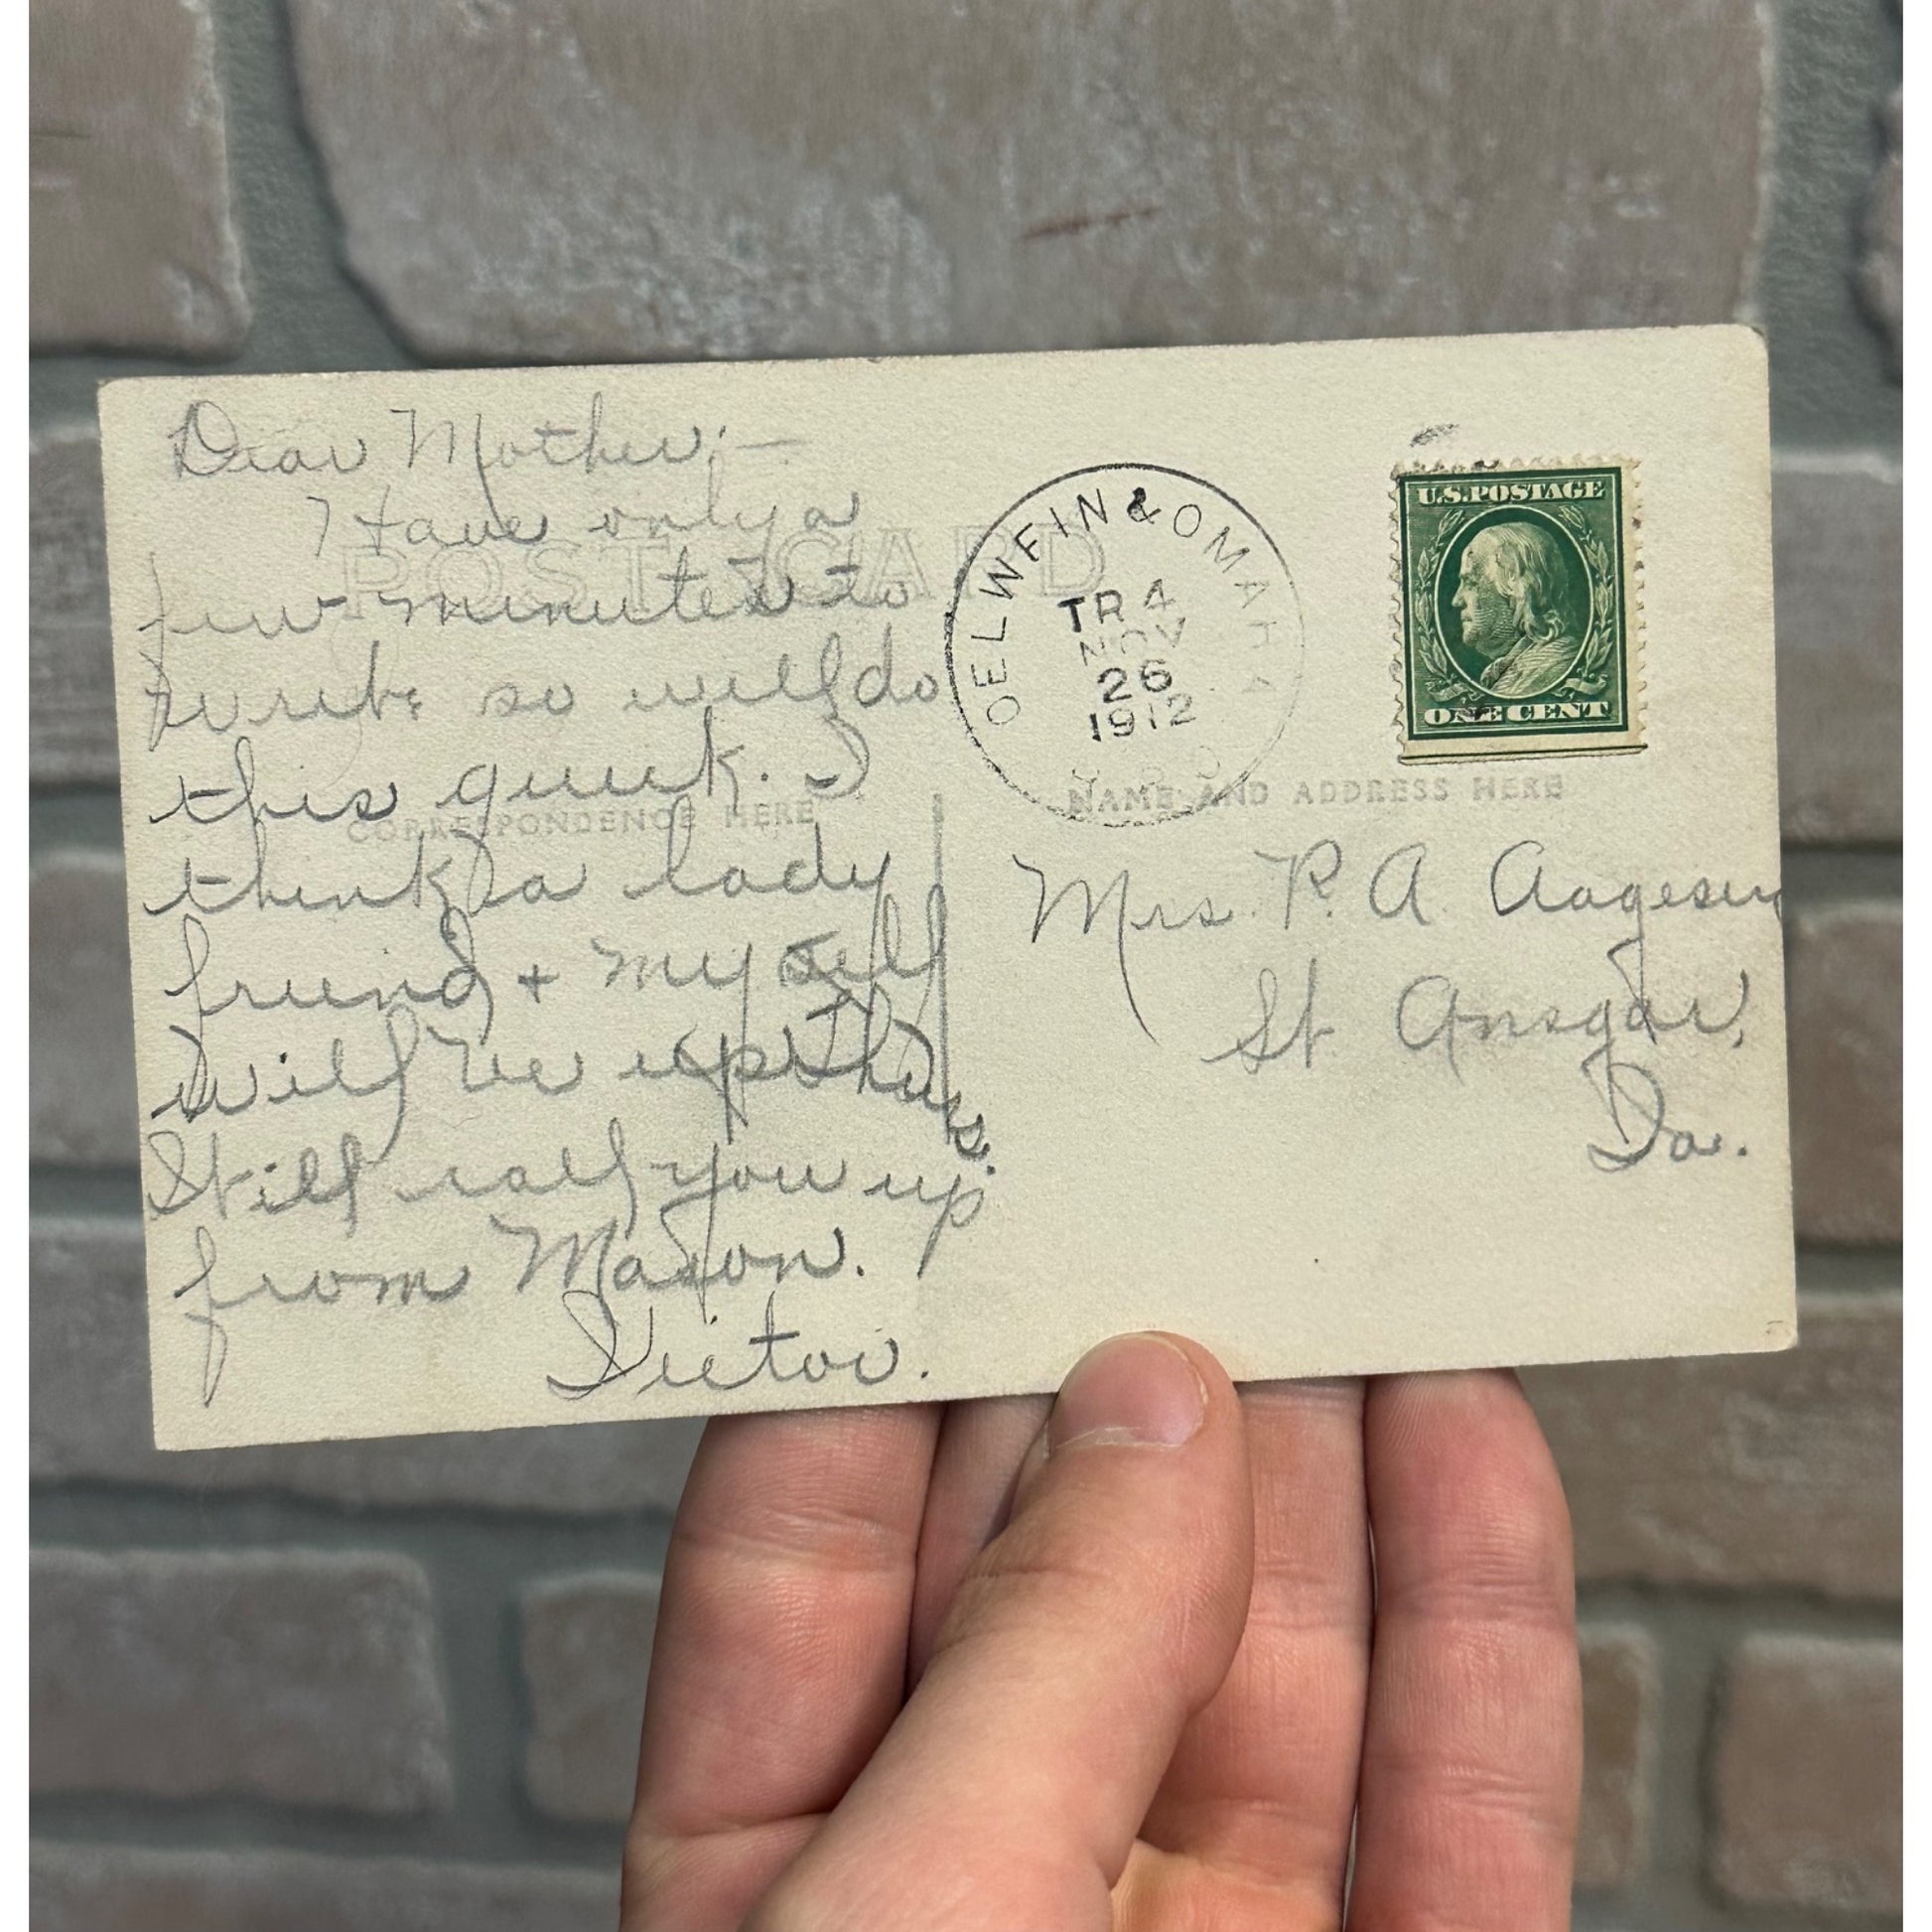 Dear Mother;—
Have only a
few minutes to
write so will do
this quick. I
think a lady
friend + my self
will be up Thurs.
Still call you up
from Mason.
Victor.
POST CARD
CORRESPONDENCE HERE
OELWEIN & OMAHA
TR 4
NOV
26
1912
R.P.O.
U.S. POSTAGE
ONE CENT
NAME AND ADDRESS HERE
Mrs. P. A. Aagesen
St. Ansgar,
Ia.